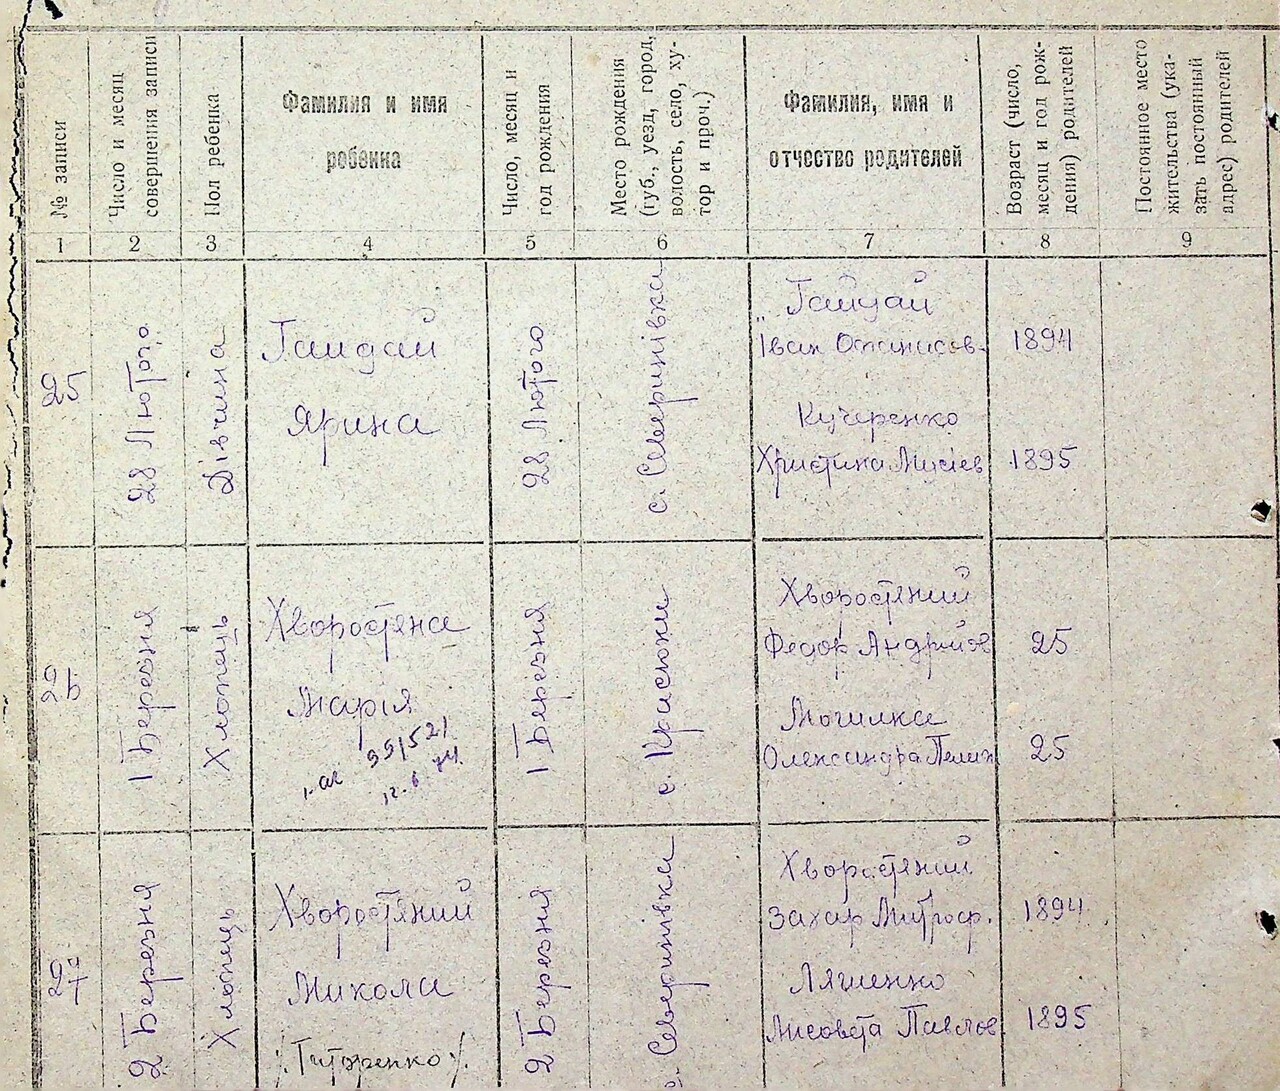 № записи
Число и месяц
совершения записи
Пол ребенка
Фамилия и имя
ребенка
Число, месяц и
год рождения
Место рождения
(губ., уезд, город,
волость, село, ху-
тор и проч.)
Фамилия, имя и
отчество родителей
Возраст (число,
месяц и год рож-
дения) родителей
Постоянное место
жительства (ука-
зать постоянный
адрес) родителей
1 2 3 4 5 6 7 8 9
25
28 Лютого
Дівчина
Гайдай
Ярина
28 Лютого
с. Северинівка
Гайдай
Іван Опанасов.
Кучеренко
Христина Мисіев
1894
1895
26
1 Березня
Хлопець
Хворостяна
Марія
1 Березня
с. Красюки
Хворостяний
Федор Андрійов
Могилка
Олександра
25
25
27
2 Березня
Хлопець
Хворостяний
Микола
/Титаренко/.
2 Березня
с. Северинівка
Хворостяний
Захар Митроф.
Ляшенко
Лисовета Павлов
1894
1895